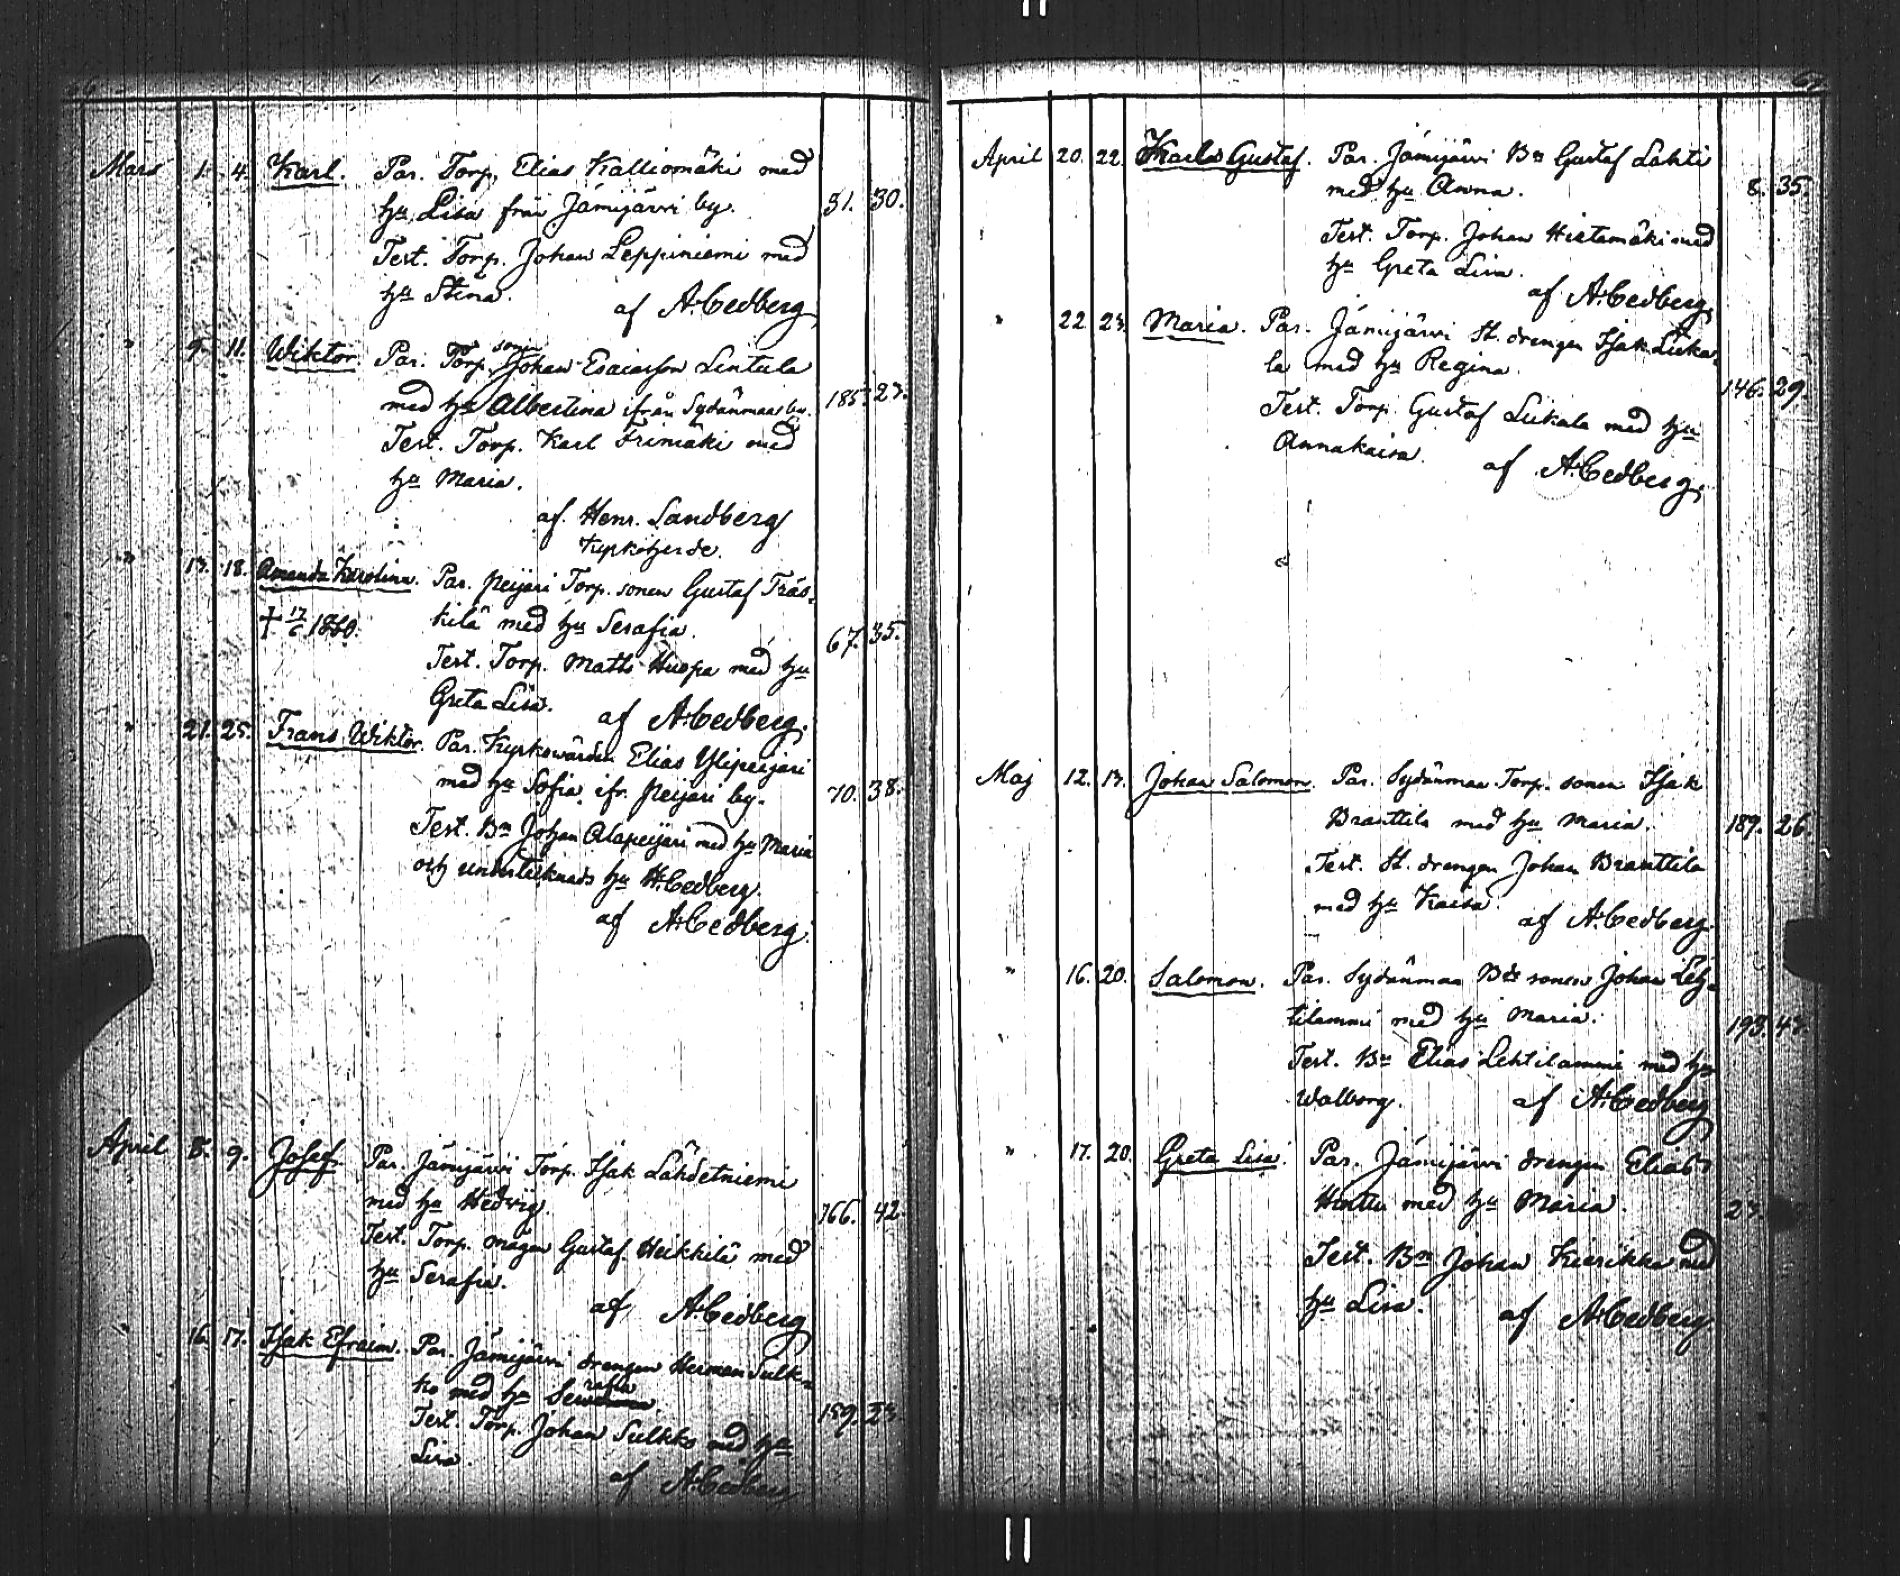 Mars 1. 4. Karl. Par. Torp. Elias Kalliomäki med
hu Lisa från Jämijärvi by. 51. 30.
Test. Torp. Johan Leppiniemi med
hu Stina.
af A. Cedberg
" 9. 11. Wiktor. Par. Torp. sonen Johan Esaiasson Lintula
med hu Albertina ifrån Sydänmaa by. 185. 23.
Test. Torp. Karl Frimäki med
hu Maria.
af. Henr. Sandberg
Kyrkoherde.
" 13. 18. Amanda Karolina. Par. Peijari Torp. sonen Gustaf Träs-
† 17/6 1880. kilä med hu Serafia. 67. 35.
Test. Torp. Matts Huopa med hu
Greta Lisa.
af A. Cedberg.
" 21. 25. Frans Wiktor. Par. Kyrkowärden Elias Ylipeijari
med hu Sofia, ifr. Peijari by. 70. 38.
Test. Bn Johan Alapeijari med hu Maria
och undertecknads hu H. Cedberg.
af A. Cedberg.
April 8. 9. Josef. Par. Jämijärvi Torp. Isak Lähdetniemi
med hu Hedvig. 166. 42.
Test. Torp. mågen Gustaf Heikkilä med
hu Serafia.
af A. Cedberg
" 16. 17. Isak Efraim. Par. Jämijärvi drengen Herman Sulk-
ko med hu Serafia. 159. 23.
Test. Torp. Johan Sulkko med hu
Lisa.
af A. Cedberg
April 20. 22. Karl Gustaf. Par. Jämijärvi Bn Gustaf Lahti
med hu Anna. 8. 35.
Test. Torp. Johan Hietamäki med
hu Greta Lisa.
af A. Cedberg.
" 22. 23. Maria. Par. Jämijärvi St. drengen Isak Liuka-
la med hu Regina. 146. 29.
Test. Torp. Gustaf Liukala med hu
Annakaisa.
af A. Cedberg.
Maj 12. 13. Johan Salomon. Par. Sydänmaa Torp. sonen Isak
Branttila med hu Maria. 189. 26.
Test. St. drengen Johan Branttila
med hu Kaisa.
af A. Cedberg.
" 16. 20. Salomon. Par. Sydänmaa Bde sonen Johan Leh-
tilammi med hu Maria. 193. 43.
Test. Bn Elias Lehtilammi med hu
Walborg.
af A. Cedberg
" 17. 20. Greta Lisa. Par. Jämijärvi drengen Elias
Hinttu med hu Maria. 23.
Test. Bn Johan Kierikka med
hu Lisa.
af A. Cedberg.